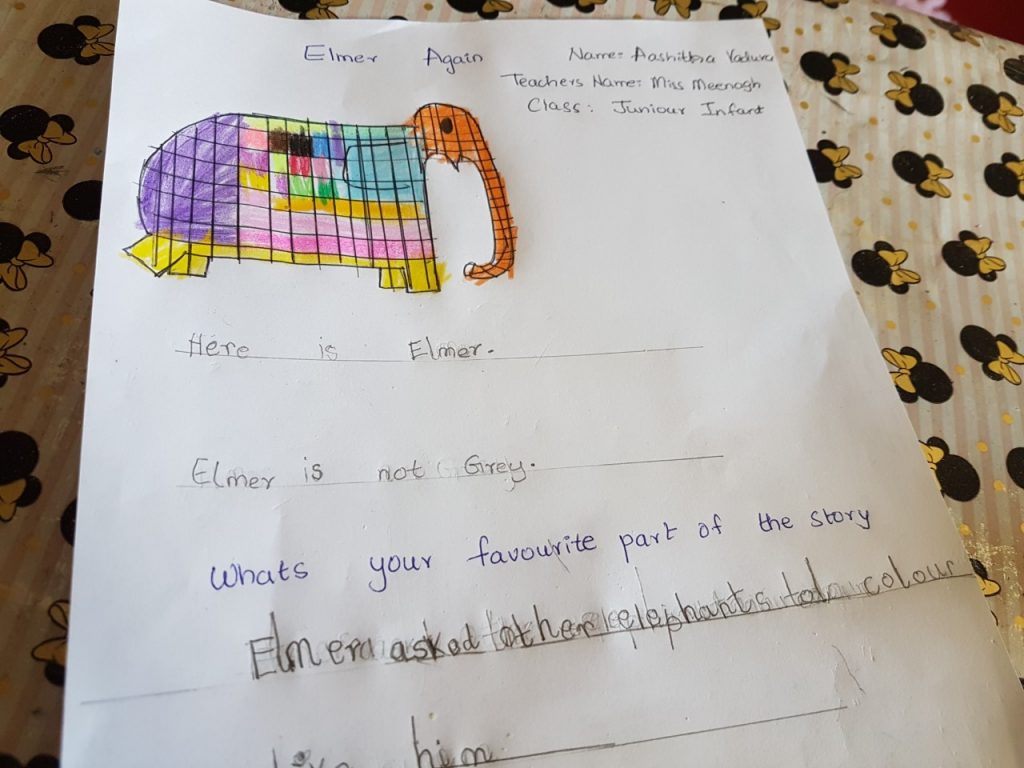 Elmer Again
Name: Aashitha
Teachers Name: Miss Meenagh
Class: Juniour Infant
Here is Elmer.
Elmer is not Grey.
Whats your favourite part of the story
Elmer asked other elephants to colour
him